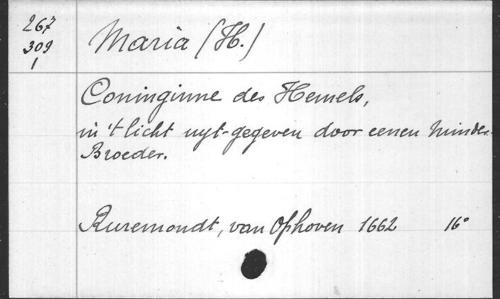 267
309
1
Maria (H.)
Coninginne des Hemels,
in 't licht uyt-gegeven door eenen Minder-
Broeder.
Ruremondt, van Ophoven 1662 16°